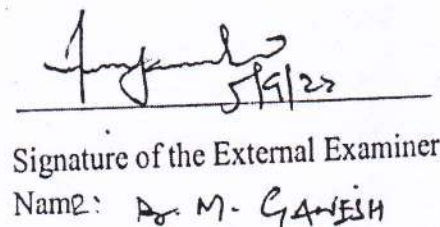 5/9/22
Signature of the External Examiner
Name: Dr. M. GANESH